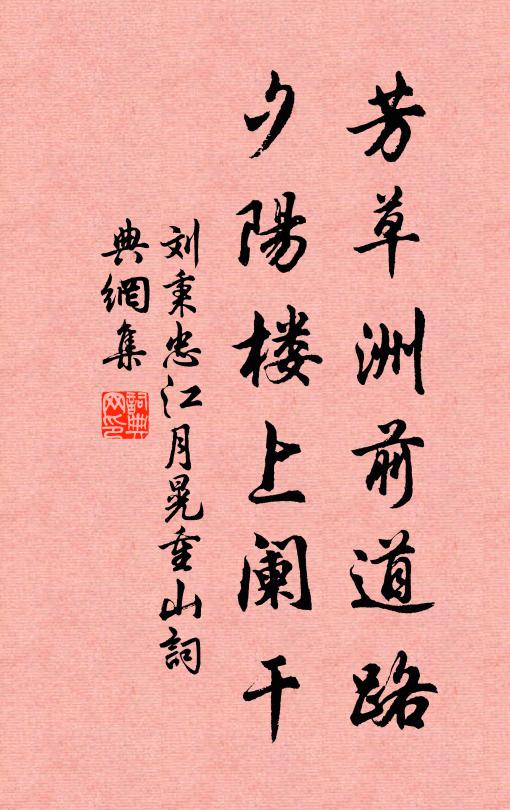 芳草洲前道路
夕陽楼上阑干
刘秉忠江月晃重山詞
典網集
詞典网印